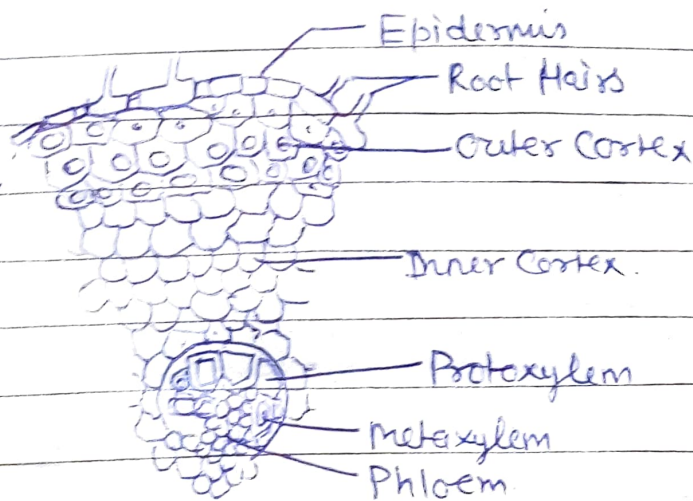 Epidermis
Root Hairs
Outer Cortex
Inner Cortex.
Protoxylem
Metaxylem
Phloem